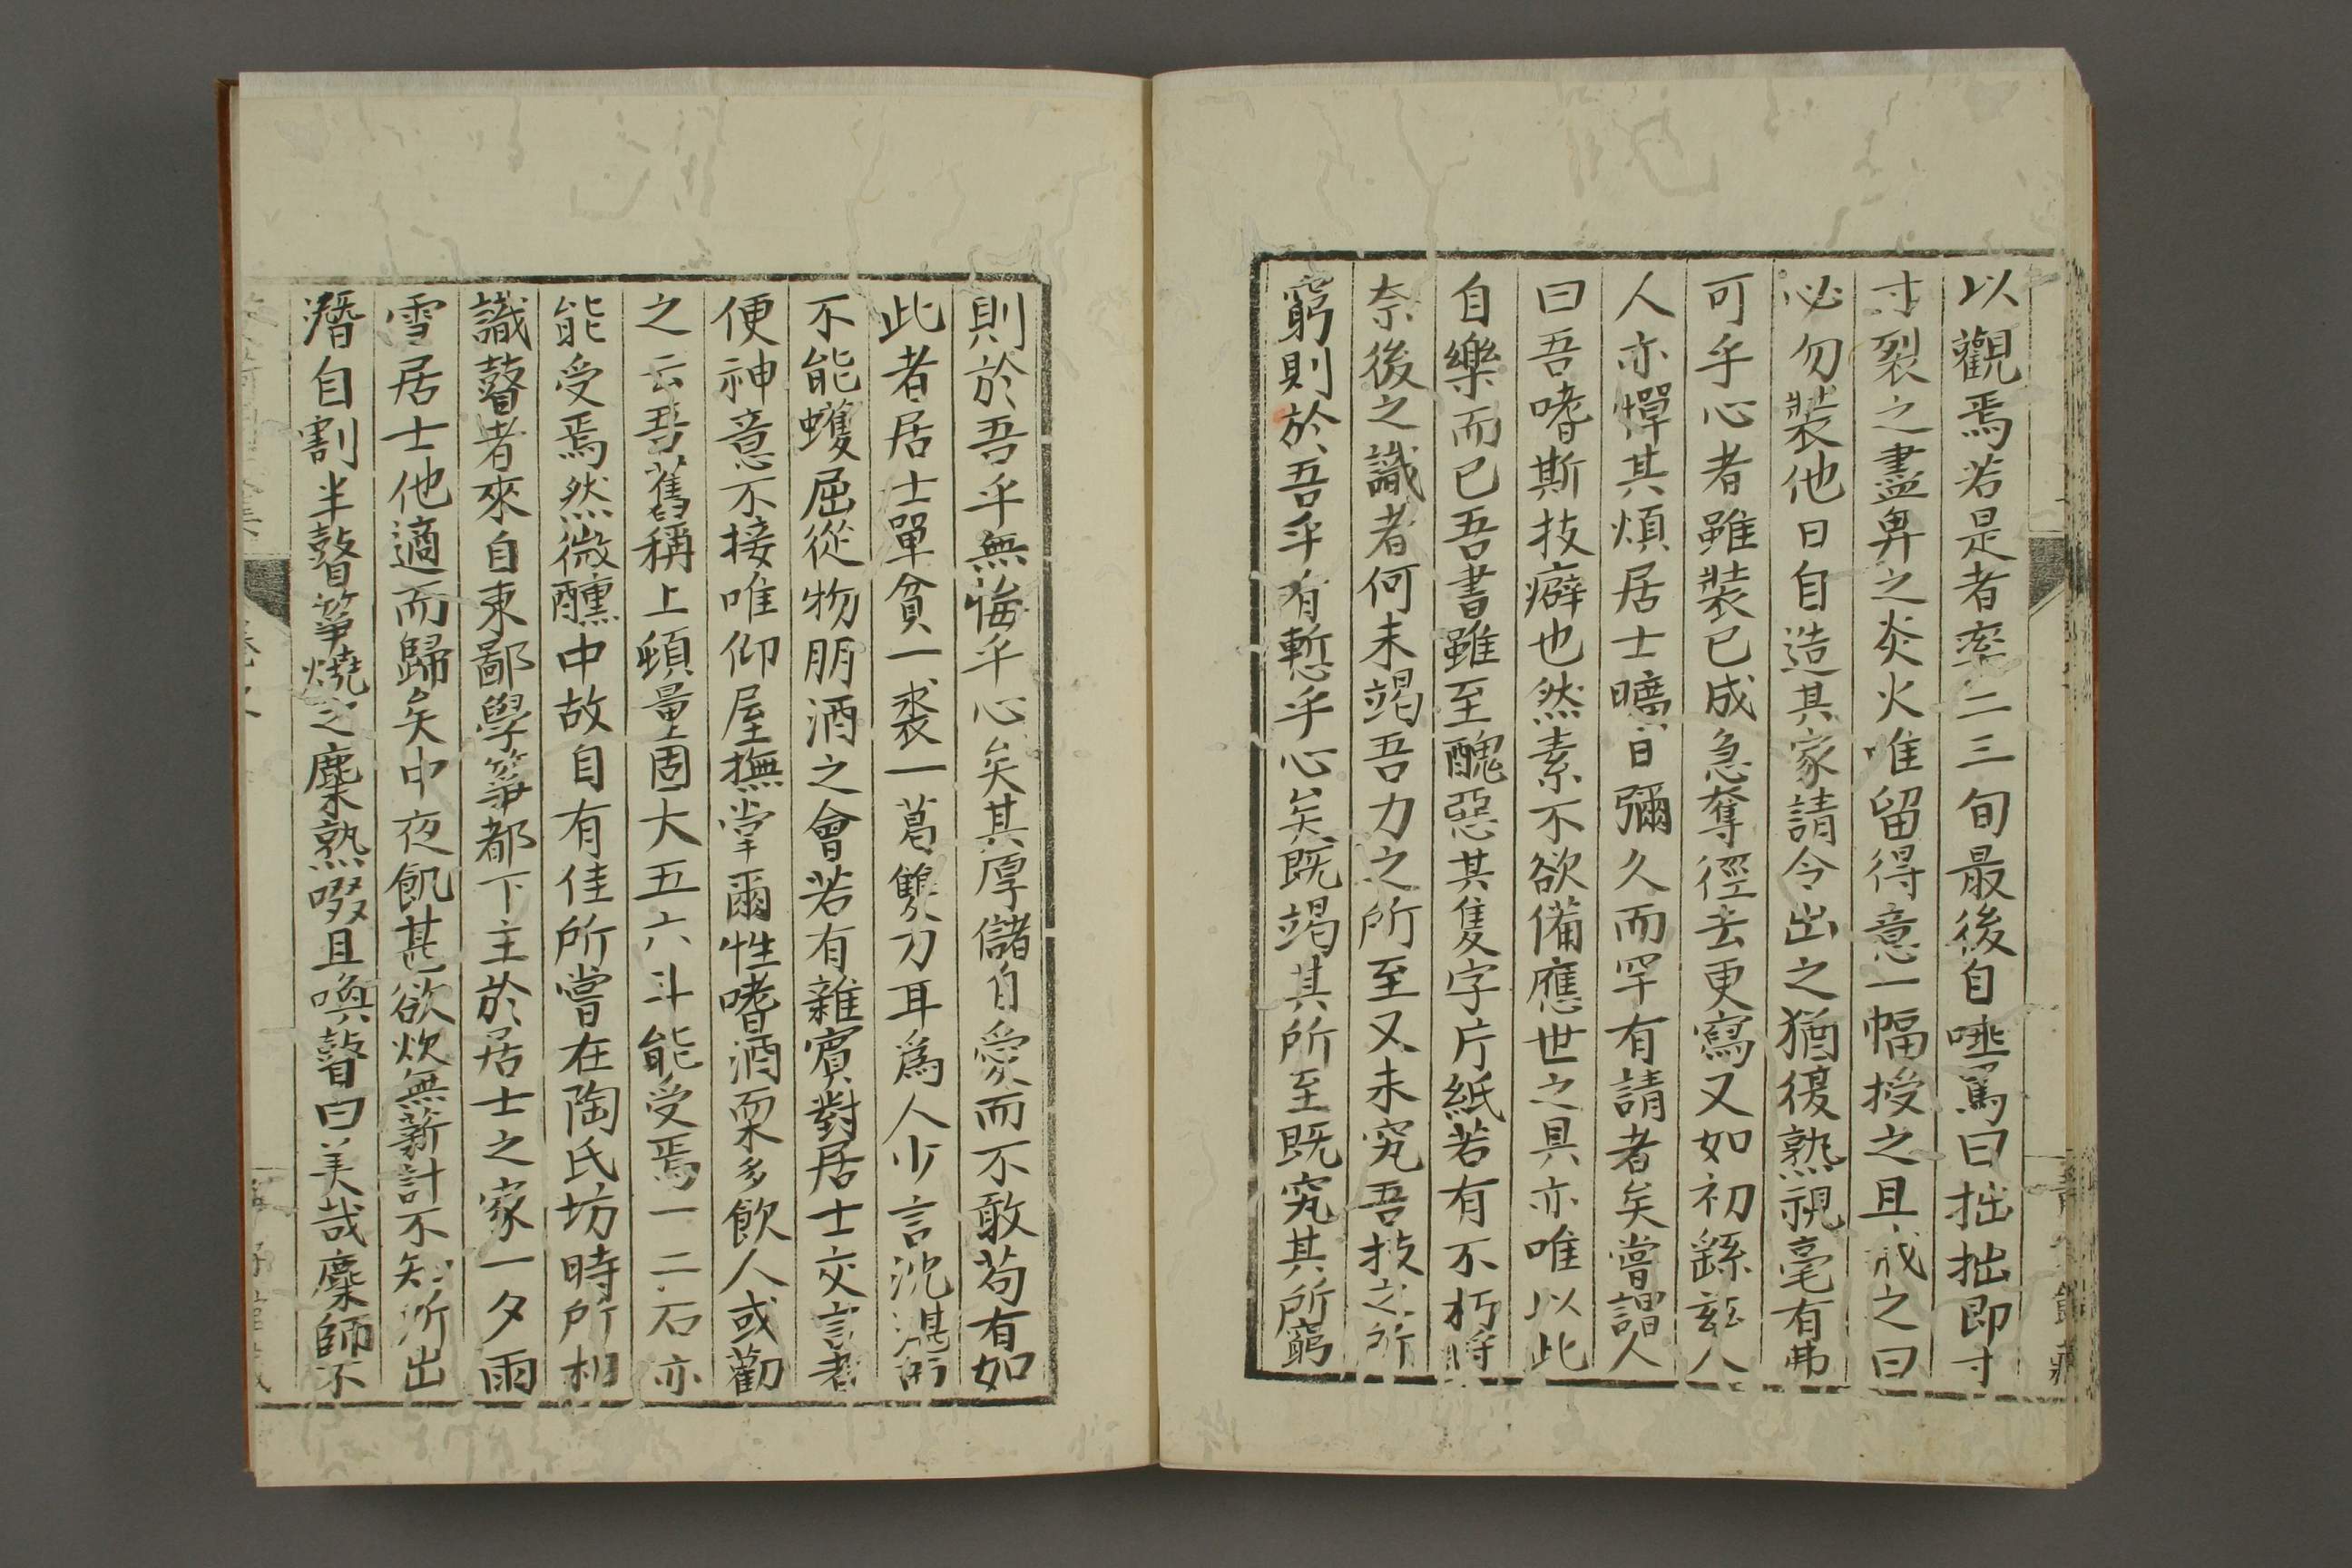 以觀焉若是者率二三旬最後自唾罵曰拙拙即寸
寸裂之盡畀之炎火唯留得意一幅授之且戒之曰
必勿裝他日自造其家請令出之猶復熟視毫有弗
可乎心者雖裝已成急奪徑去更寫又如初繇玆人
人亦憚其煩居士曠日彌久而罕有請者矣嘗謂人
曰吾嗜斯技癖也然素不欲備應世之具亦唯以此
自樂而已吾書雖至醜惡其隻字片紙若有不朽將
奈後之識者何未竭吾力之所至又未究吾技之所
窮則於吾乎有慙乎心矣既竭其所至既究其所窮
則於吾乎無悔乎心矣其厚儲自愛而不敢苟有如
此者居士單貧一裘一葛雙刀耳爲人少言沈湛而
不能蠖屈從物朋酒之會若有雜賓對居士交言者
便神意不接唯仰屋撫掌爾性嗜酒栗多飲人或勸
之云吾舊稱上頓量固大五六斗能受焉一二石亦
能受焉然微醺中故自有佳所嘗在陶氏坊時所相
識瞽者來自東鄙學箏都下主於居士之家一夕雨
雪居士他適而歸矣中夜飢甚欲炊無薪計不知所出
潛自割半瞽箏燒之糜熟啜且喚瞽曰美哉糜師不